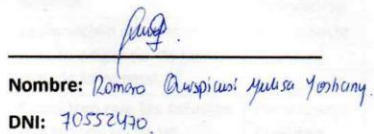 Nombre: Romero Quispicusi Yulisa Yoshany.
DNI: 70552470